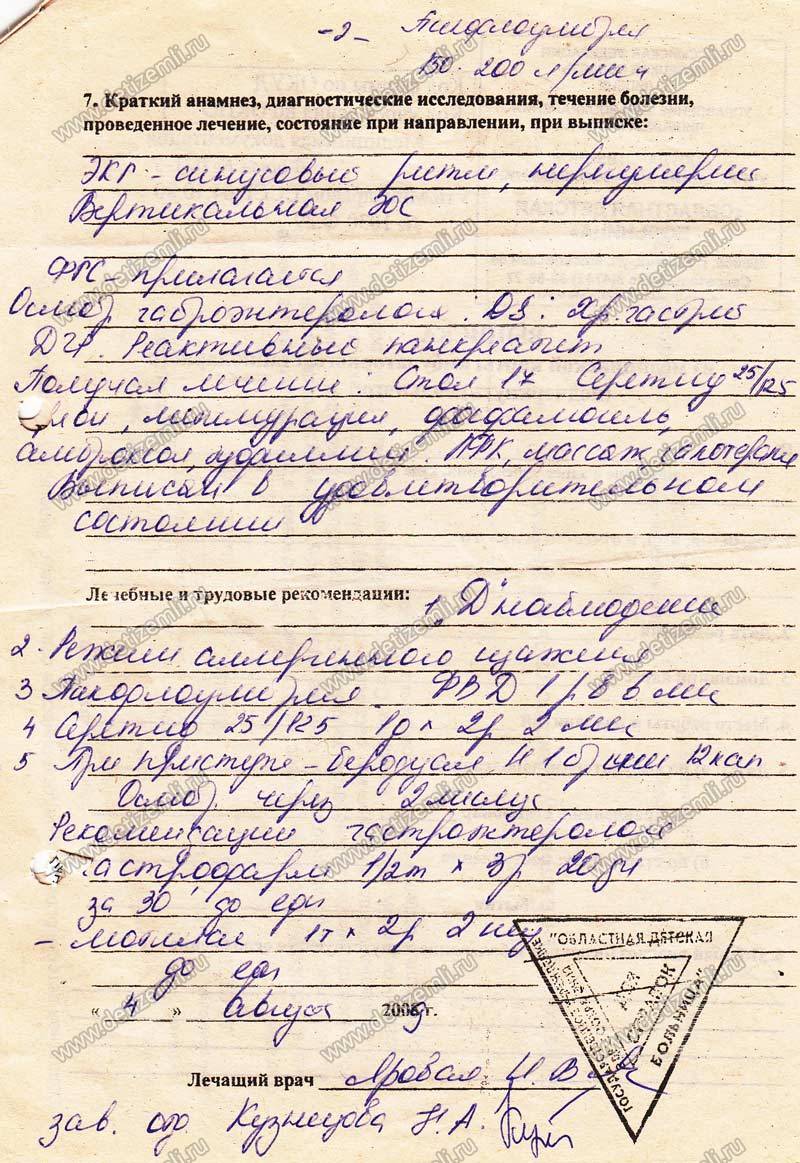 - 2 -
150-200 л/мин
7. Краткий анамнез, диагностические исследования, течение болезни,
проведенное лечение, состояние при направлении, при выписке:
ЭКГ - синусовый ритм,
Вертикальная ЭОС
ФГС прилагается
Осмотр гастроэнтеролога: DS: Хр. гастрит
Реактивный панкреатит
Получал лечение: Стол 17 Серетид 25/125
амброксол, ЛФК, массаж, галотерапия
Выписан в удовлетворительном
состоянии
Лечебные и трудовые рекомендации: 1. "Д" наблюдение
2. Режим аллергенного щажения
3 ФВД 1 р в 6 мес
4 Серетид 25/125 1д × 2р 2 мес
5 При приступе - беродуал Н 12 кап
Осмотр через 2 месяца
Рекомендации гастроэнтеролога
гастрофарм 1/2т × 3р 20 дн
за 30' до еды
- мотилак 1т × 2р 2 нед
до еды
" 4 " август 2009 г.
Лечащий врач Яровая Н. В.
зав. отд. Кузнецова Н. А.
"ОБЛАСТНАЯ ДЕТСКАЯ
БОЛЬНИЦА"
ГОСУДАРСТВЕННОЕ УЧРЕЖДЕНИЕ
ДЛЯ СПРАВОК
www.detizemli.ru